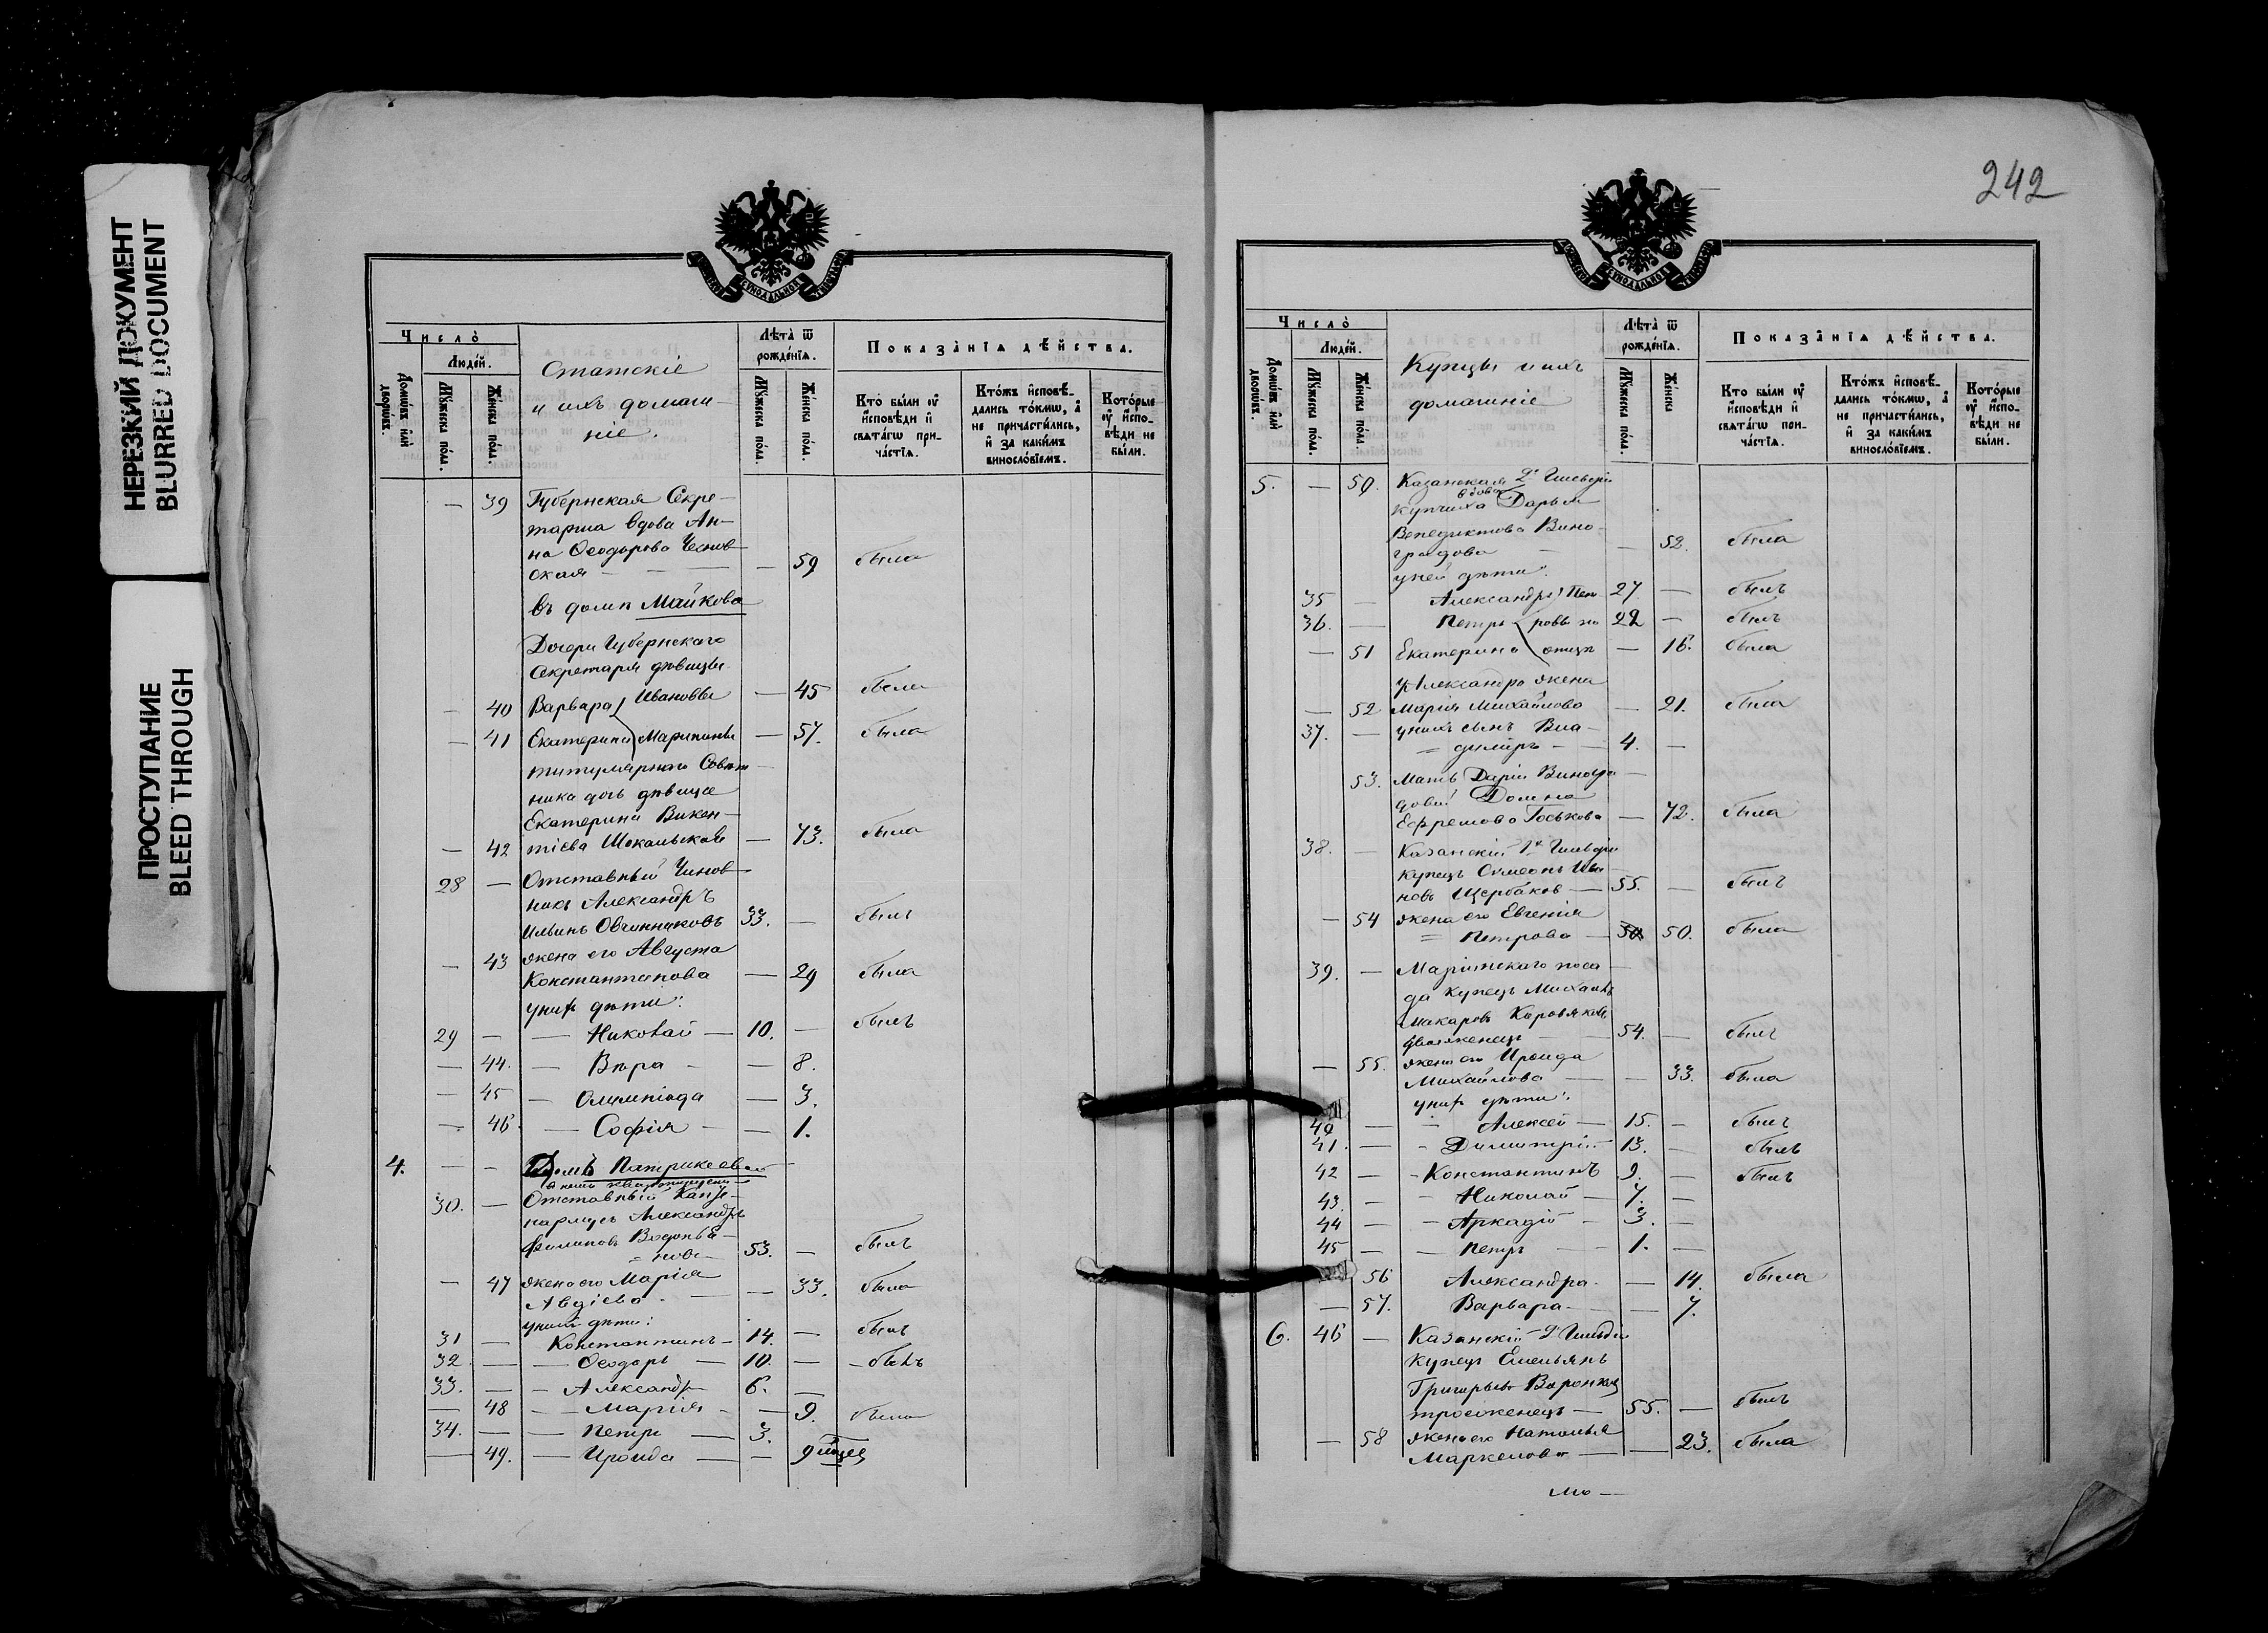 НЕРЕЗКИЙ ДОКУМЕНТ
BLURRED DOCUMENT
ПРОСТУПАНИЕ
BLEED THROUGH
Число̀
Людей.
Домѡвъ или дворѡвъ.
Мꙋжеска пола.
Женска пола.
Статскіе
и ихъ домаш-
ніе.
Лѣта ѿ рожденїѧ.
Мꙋжеска пола.
Женска пола.
Показанїѧ дѣйства.
Кто были оу҆ исповѣди и свѧтагѡ причастїѧ.
Ктожъ исповѣдались токмѡ, а не причастились, и за какимъ винословїемъ.
Которые оу҆ исповѣди не были.
— 39 Губернская Секре-
тарша вдова Ан-
на Ѳеодорова Чеснов-
ская — — — — 59 была
въ домѣ Майкова
Дочери Губернскаго
Секретаря дѣвицы
— 40 Варвара Ивановы — 45 была
— 41 Екатерина Мариины — 57. была
титулярнаго Совѣт-
ника дочь дѣвица
Екатерина Викен-
— 42 тіева Шокальская — 73. была
28 — Отставный Чинов-
никъ Александръ
Ильинъ Овчинниковъ 33. — былъ
— 43 жена его Августа
Константинова — 29 была
у нихъ дѣти:
29 — — Николай — 10. — былъ
— 44. — Вѣра — — 8.
— 45 — Олимпіада — 3.
— 46. — Софія — — 1.
4. — — Домъ Патрикеевой
30. — Отставный Капе-
лармусъ Александръ
Филиповъ
53. — былъ
— 47 жена его Марія
Авдіева — — 33. была
у нихъ дѣти:
31 — Константинъ — 14. — былъ
32 — — Ѳеодоръ — 10. — — былъ
33. — — Александръ 6. —
— 48 — Марія — — 9. была
34. — — Петръ — 3.
— 49. — Ираида — — 9 мѣсяц
242
Число̀
Людей.
Домѡвъ или дворѡвъ.
Мꙋжеска пола.
Женска пола.
Купцы и ихъ
домашніе
Лѣта ѿ рожденїѧ.
Мꙋжеска пола.
Женска
Показанїѧ дѣйства.
Кто были оу҆ исповѣди и свѧтагѡ причастїѧ.
Ктожъ исповѣдались токмѡ, а не причастились, и за какимъ винословїемъ.
Которые оу҆ исповѣди не были.
5. — 50. Казанская 2й Гильдіи
вдова
купчиха Дарья
Венедиктова Вино-
градова — — 52. была
у ней дѣти:
35 — Александръ Пет- 27. — былъ
36. — Петръ ровы по 22 — былъ
— 51 Екатерина отцѣ — 16. была
у Александра жена
— 52 Марія Михайлова — 21. была
37. — у нихъ сынъ Вла-
= димиръ — 4. —
53. Мать Даріи Виногра-
довой Домна
Ефремова Госькова — 72. была
38. — Казанскій 1й Гильдіи
купецъ Симеонъ Ива-
новъ Щербаковъ — 55. — былъ
— 54 жена его Евгенія
= Петрова — 50. была
39. — Маріинскаго поса-
да купецъ Михаилъ
Макаровъ
двоеженецъ — 54. — былъ
— 55. жена его Ираида
Михайлова — — 33. была
у нихъ дѣти:
40 — — Алексей — 15. — былъ
41. — — Димитрій — 13. — былъ
42 — — Константинъ 9. — былъ
43. — — Николай — 7. —
44 — — Аркадій — 3. —
45 — — Петръ — 1. —
56 Александра — — 14. была
— 57. Варвара — — 7.
6. 46 — Казанскій 2й Гильдіи
купецъ Емельянъ
Григорьевъ
троеженецъ — 55. — былъ
— 58 жена его Наталья
Маркелова — — 23. была